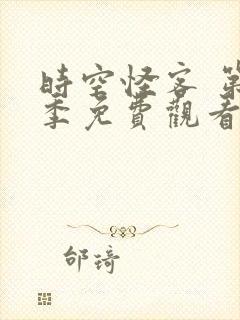 時空怪客 第
季免費觀看
邰琦